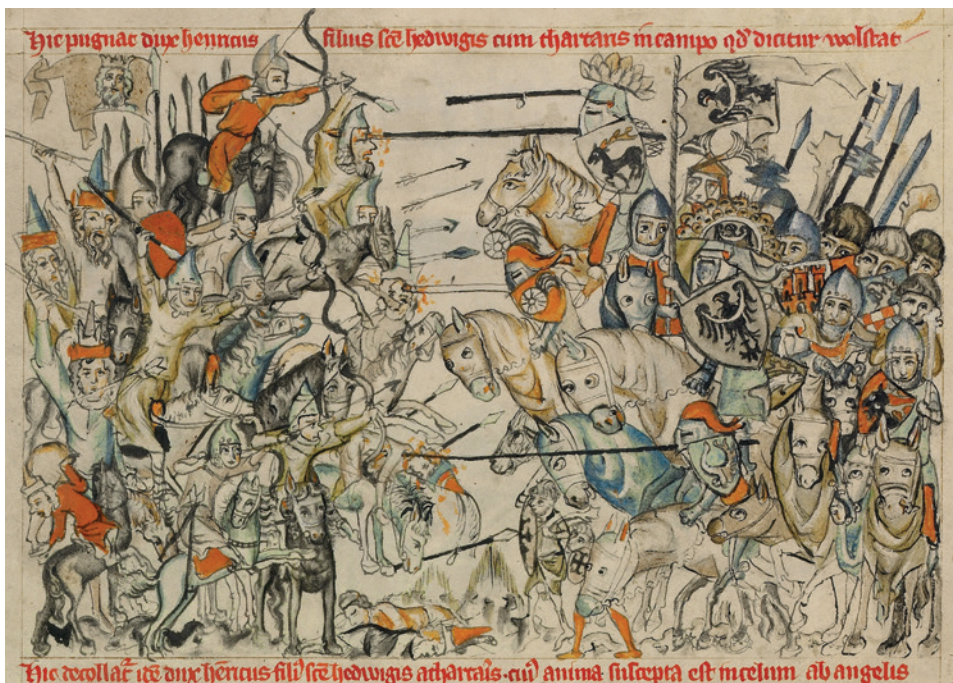 Hic pugnat dux henricus filius scē hedwigis cum thartaris in campo qd' dicitur wolstat
Hic decollat̄ idē dux hēricus fili' scē hedwigis a thartaris · cui' anima suscepta est in celum ab angelis